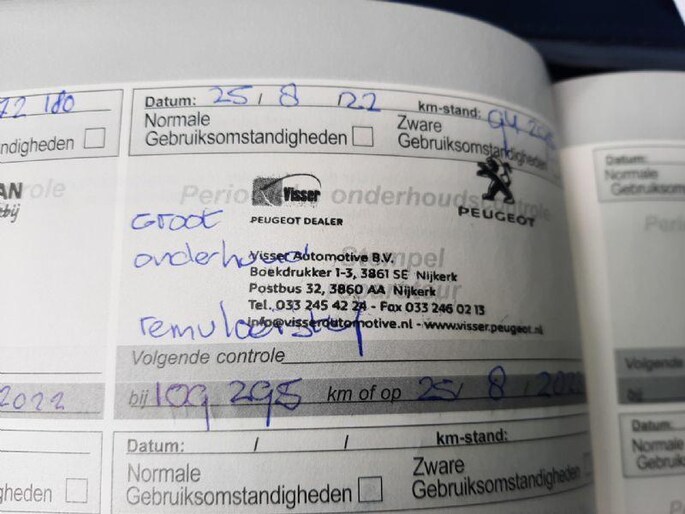 72 180
ndigheden
AN
bij
2022
gheden
Datum: 25 / 8 / 22 km-stand:
Normale
Gebruiksomstandigheden
Zware
Gebruiksomstandigheden
Periodiek onderhoudscontrole
Visser
PEUGEOT DEALER
PEUGEOT
Groot
onderhoud
Stempel
Visser Automotive B.V.
Boekdrukker 1-3, 3861 SE Nijkerk
Postbus 32, 3860 AA Nijkerk
Tel. 033 245 42 24 - Fax 033 246 02 13
info@visserautomotive.nl - www.visser.peugeot.nl
remvloeistof
Volgende controle
bij 109 295 km of op 25 / 8 / 202
Datum: / / km-stand:
Normale
Gebruiksomstandigheden
Zware
Gebruiksomstandigheden
Datum:
Normale
Gebruiksoms
Perio
Volgende
bij
Datum:
Normale
Gebruiks